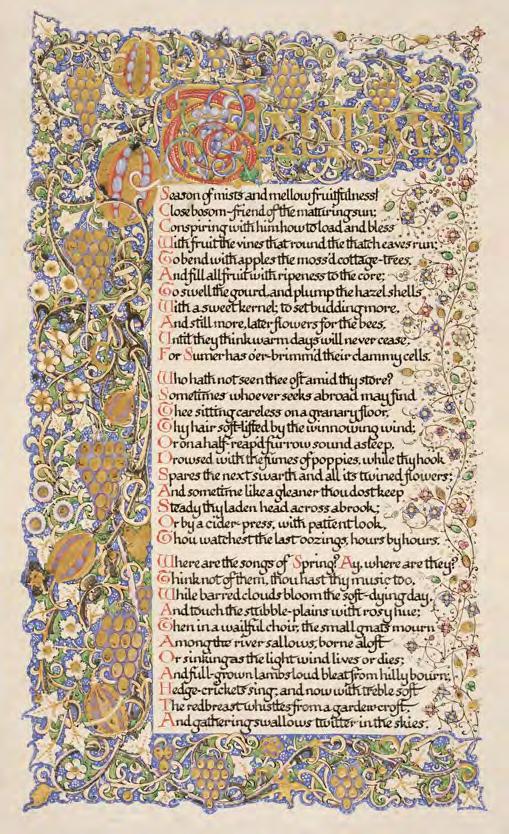 TO AUTUMN
Season of mists and mellow fruitfulness!
Close bosom-friend of the maturing sun;
Conspiring with him how to load and bless
With fruit the vines that round the thatch eaves run;
To bend with apples the moss'd cottage-trees,
And fill all fruit with ripeness to the core;
To swell the gourd, and plump the hazel shells
With a sweet kernel; to set budding more,
And still more, later flowers for the bees,
Until they think warm days will never cease,
For Sumer has o'er-brimm'd their clammy cells.
Who hath not seen thee oft amid thy store?
Sometimes whoever seeks abroad may find
Thee sitting careless on a granary floor,
Thy hair soft-lifted by the winnowing wind;
Or on a half-reap'd furrow sound asleep,
Drowsed with the fumes of poppies, while thy hook
Spares the next swarth and all its twined flowers;
And sometime like a gleaner thou dost keep
Steady thy laden head across a brook;
Or by a cider-press, with patient look,
Thou watchest the last oozings, hours by hours.
Where are the songs of Spring? Ay, where are they?
Think not of them, thou hast thy music too,
While barred clouds bloom the soft-dying day,
And touch the stubble-plains with rosy hue;
Then in a wailful choir, the small gnats mourn
Among the river sallows, borne aloft
Or sinking as the light wind lives or dies;
And full-grown lambs loud bleat from hilly bourn;
Hedge-crickets sing; and now with treble soft
The redbreast whistles from a garden croft,
And gathering swallows twitter in the skies.